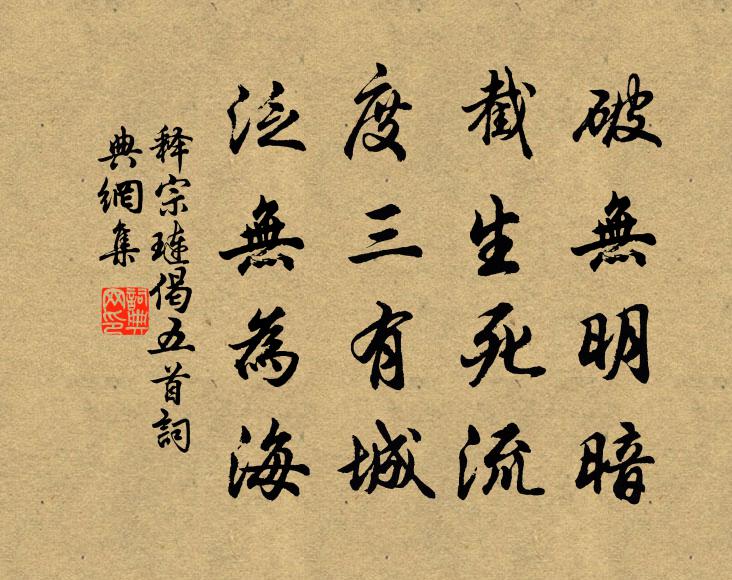 破無明暗
截生死流
度三有城
泛無為海
释宗琏偈五首詞
典網集
詞典
网印